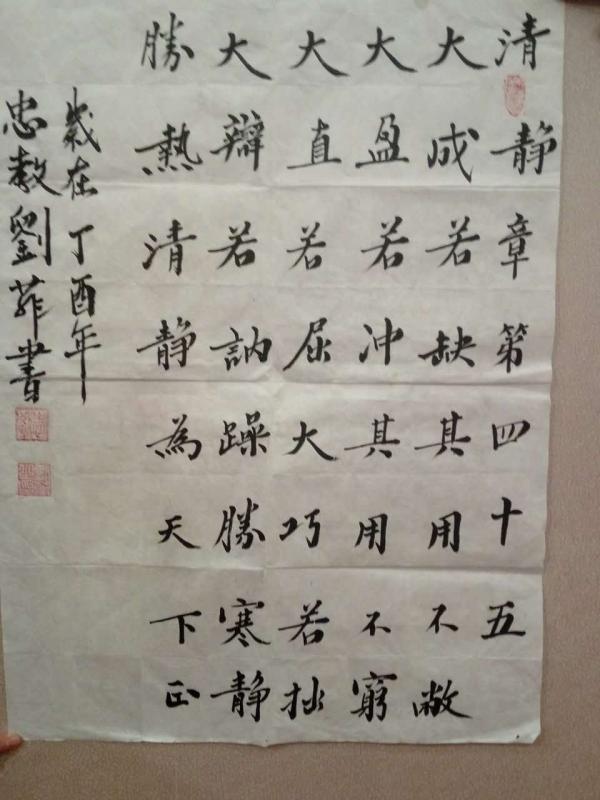 清静章第四十五
大成若缺其用不敝
大盈若冲其用不穷
大直若屈大巧若拙
大辯若訥躁勝寒静
勝熱清静為天下正
歲在丁酉年
忠教劉菲書